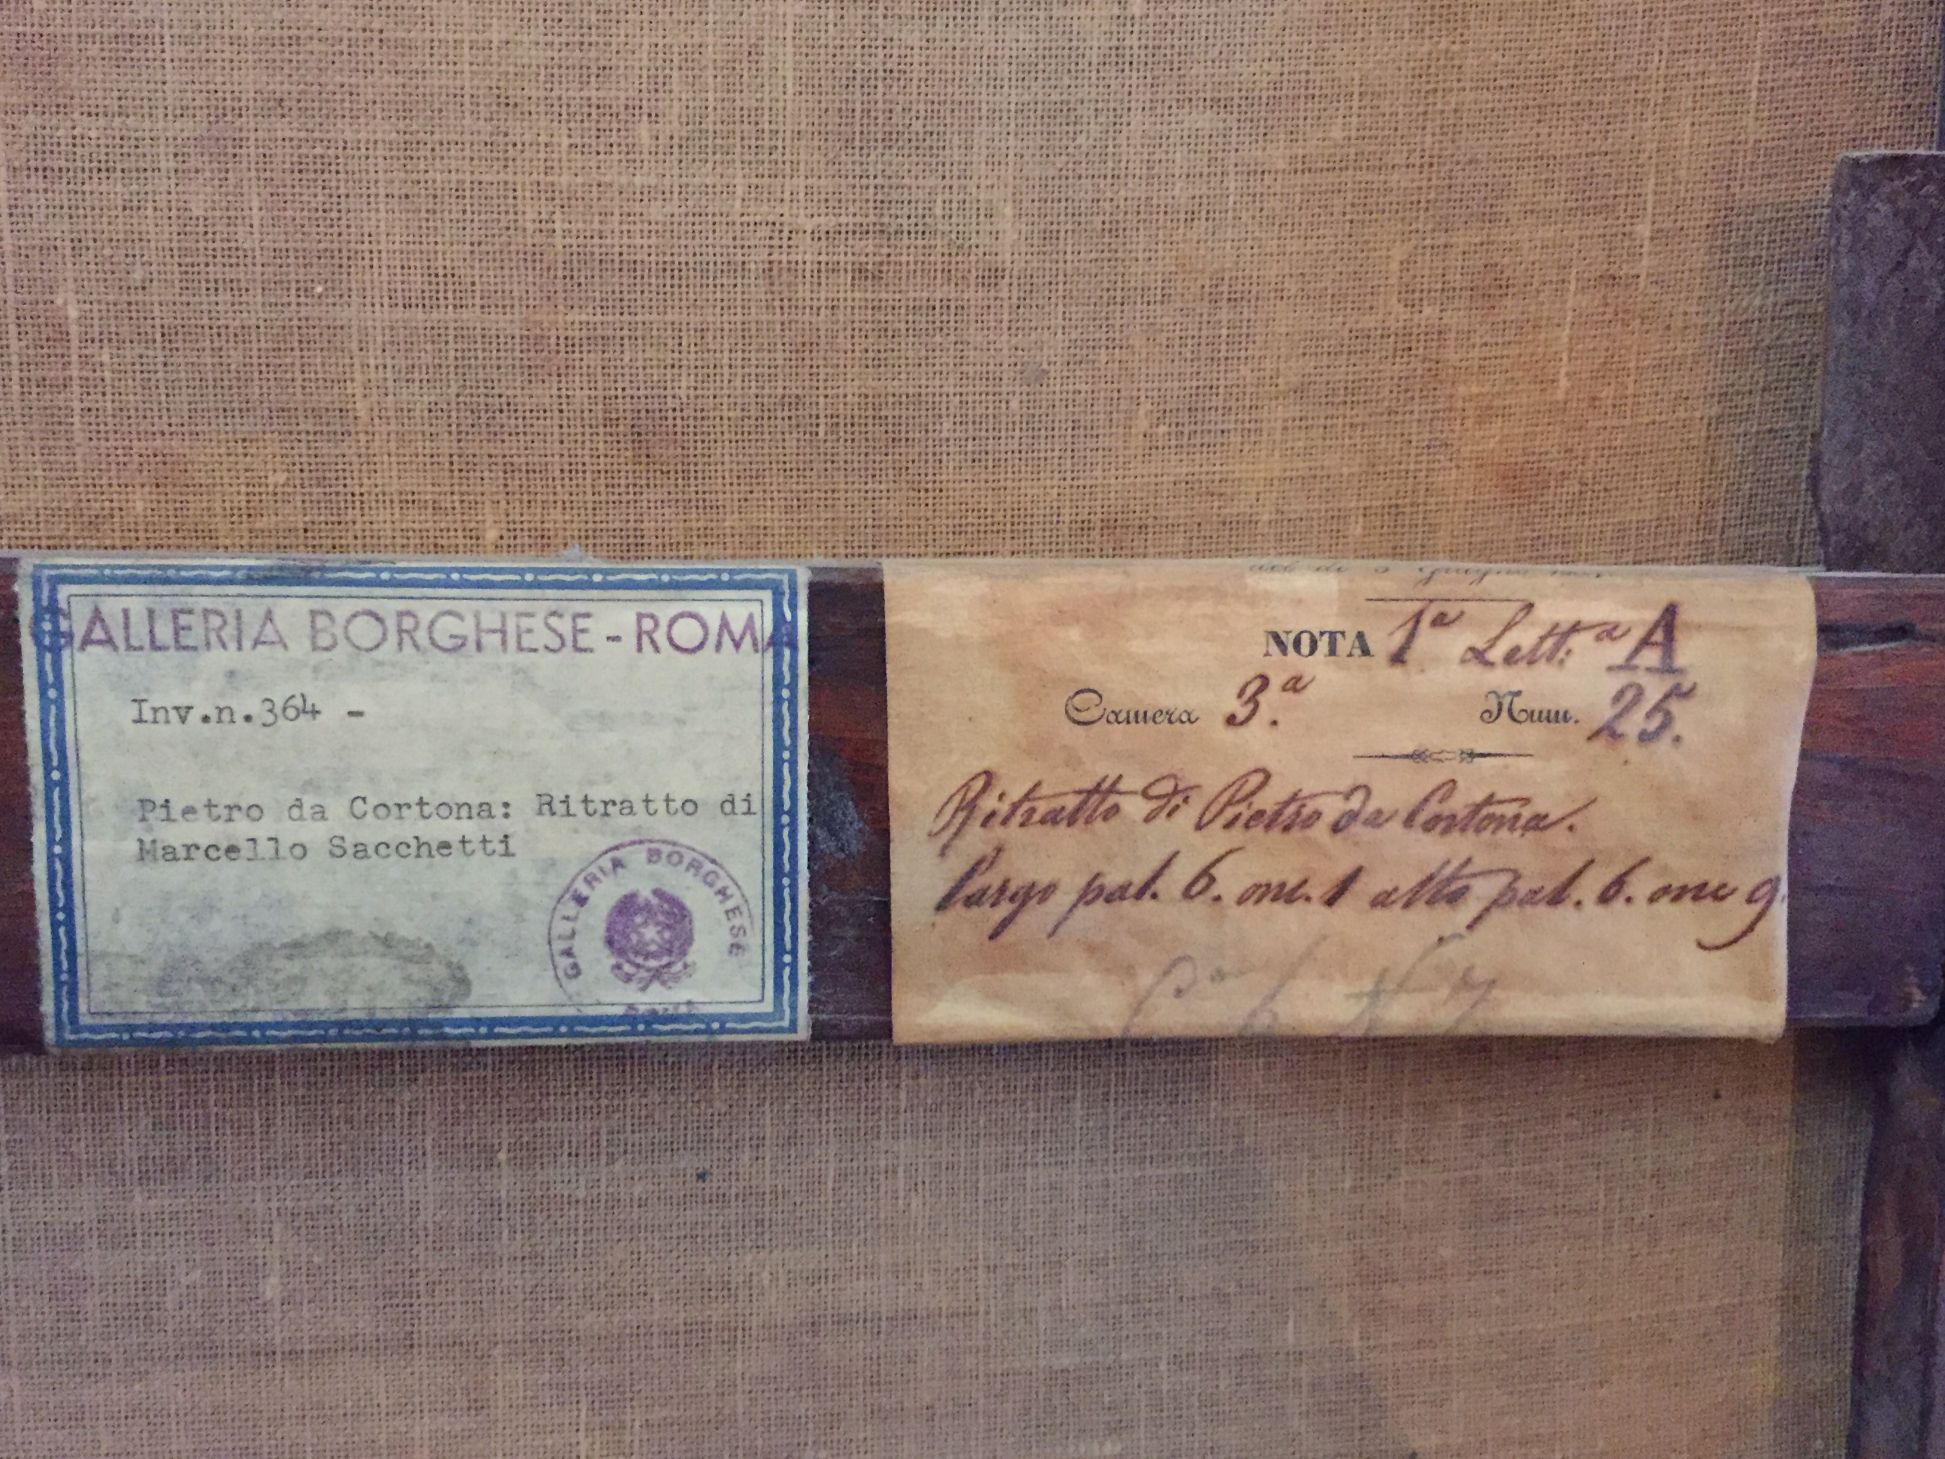 GALLERIA BORGHESE - ROMA
Inv.n.364 -
Pietro da Cortona: Ritratto di
Marcello Sacchetti
GALLERIA BORGHESE
NOTA 1ª Lett:ª A
Camera 3.ª Num. 25.
Ritratto di Pietro da Cortona.
Largo pal. 6. onc. 1 alto pal. 6. onc 9.